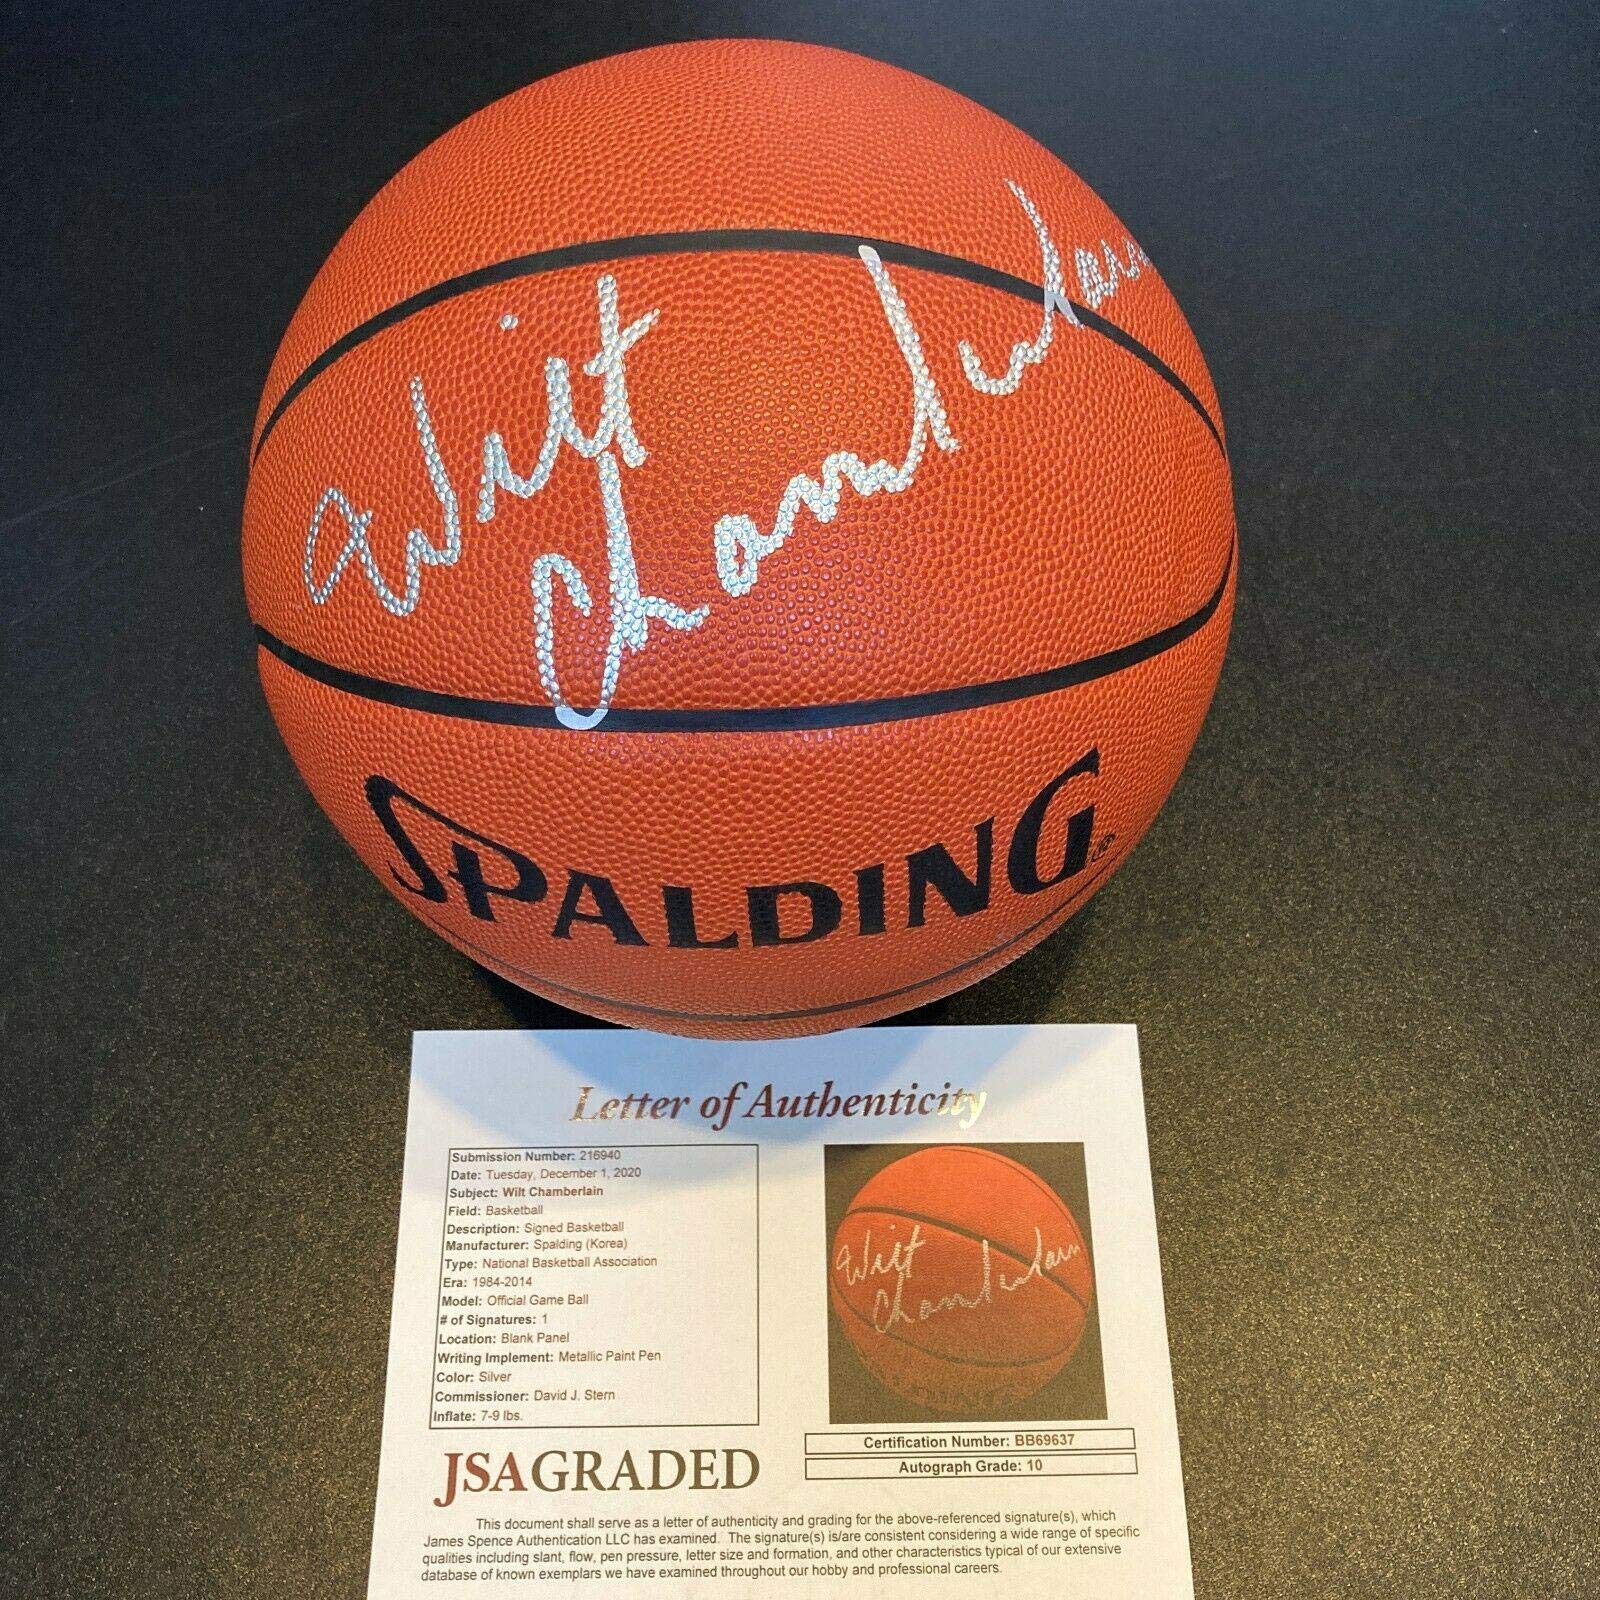 Wilt
Chamberlain
SPALDING®
Letter of Authenticity
Submission Number: 216940
Date: Tuesday, December 1, 2020
Subject: Wilt Chamberlain
Field: Basketball
Description: Signed Basketball
Manufacturer: Spalding (Korea)
Type: National Basketball Association
Era: 1984-2014
Model: Official Game Ball
# of Signatures: 1
Location: Blank Panel
Writing Implement: Metallic Paint Pen
Color: Silver
Commissioner: David J. Stern
Inflate: 7-9 lbs.
Wilt
Chamberlain
Certification Number: BB69637
Autograph Grade: 10
JSAGRADED
This document shall serve as a letter of authenticity and grading for the above-referenced signature(s), which
James Spence Authentication LLC has examined. The signature(s) is/are consistent considering a wide range of specific
qualities including slant, flow, pen pressure, letter size and formation, and other characteristics typical of our extensive
database of known exemplars we have examined throughout our hobby and professional careers.